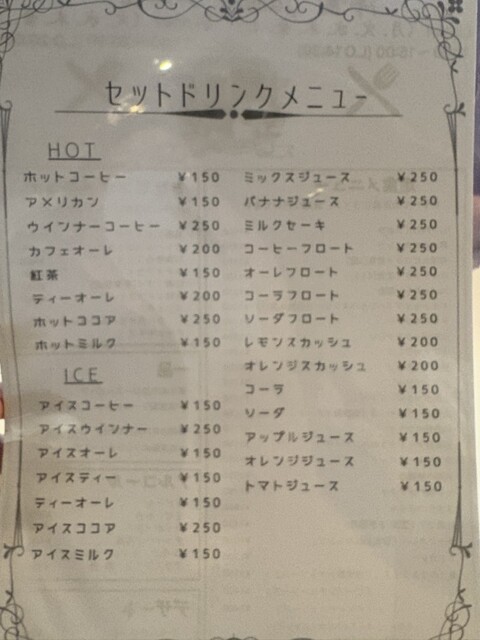 セットドリンクメニュー
HOT
ホットコーヒー ¥150
アメリカン ¥150
ウインナーコーヒー ¥250
カフェオーレ ¥200
紅茶 ¥150
ティーオーレ ¥200
ホットココア ¥250
ホットミルク ¥150
ICE
アイスコーヒー ¥150
アイスウインナー ¥250
アイスオーレ ¥150
アイスティー ¥150
ティーオーレ ¥150
アイスココア ¥250
アイスミルク ¥150
ミックスジュース ¥250
バナナジュース ¥250
ミルクセーキ ¥250
コーヒーフロート ¥250
オーレフロート ¥250
コーラフロート ¥250
ソーダフロート ¥250
レモンスカッシュ ¥200
オレンジスカッシュ ¥200
コーラ ¥150
ソーダ ¥150
アップルジュース ¥150
オレンジジュース ¥150
トマトジュース ¥150